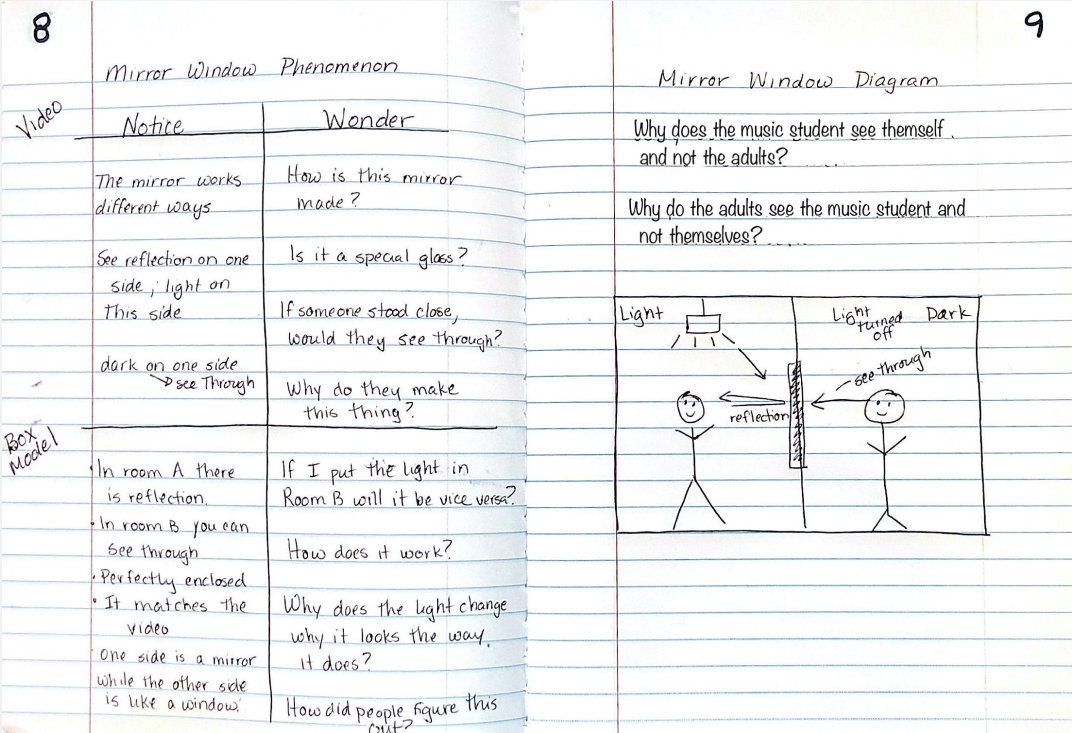 8
Mirror Window Phenomenon
Video
Notice
The mirror works
different ways
See reflection on one
side, light on
This side
dark on one side
see Through
Wonder
How is this mirror
made?
Is it a special glass?
If someone stood close,
would they see through?
Why do they make
this thing?
Box
Model
In room A there
is reflection.
In room B you can
see through
Perfectly enclosed
It matches the
video
One side is a mirror
while the other side
is like a window.
If I put the light in
Room B will it be vice versa?
How does it work?
Why does the light change
why it looks the way
it does?
How did people figure this
out?
9
Mirror Window Diagram
Why does the music student see themself
and not the adults?
Why do the adults see the music student and
not themselves?
Light
reflection
Light
turned
off
Dark
see through